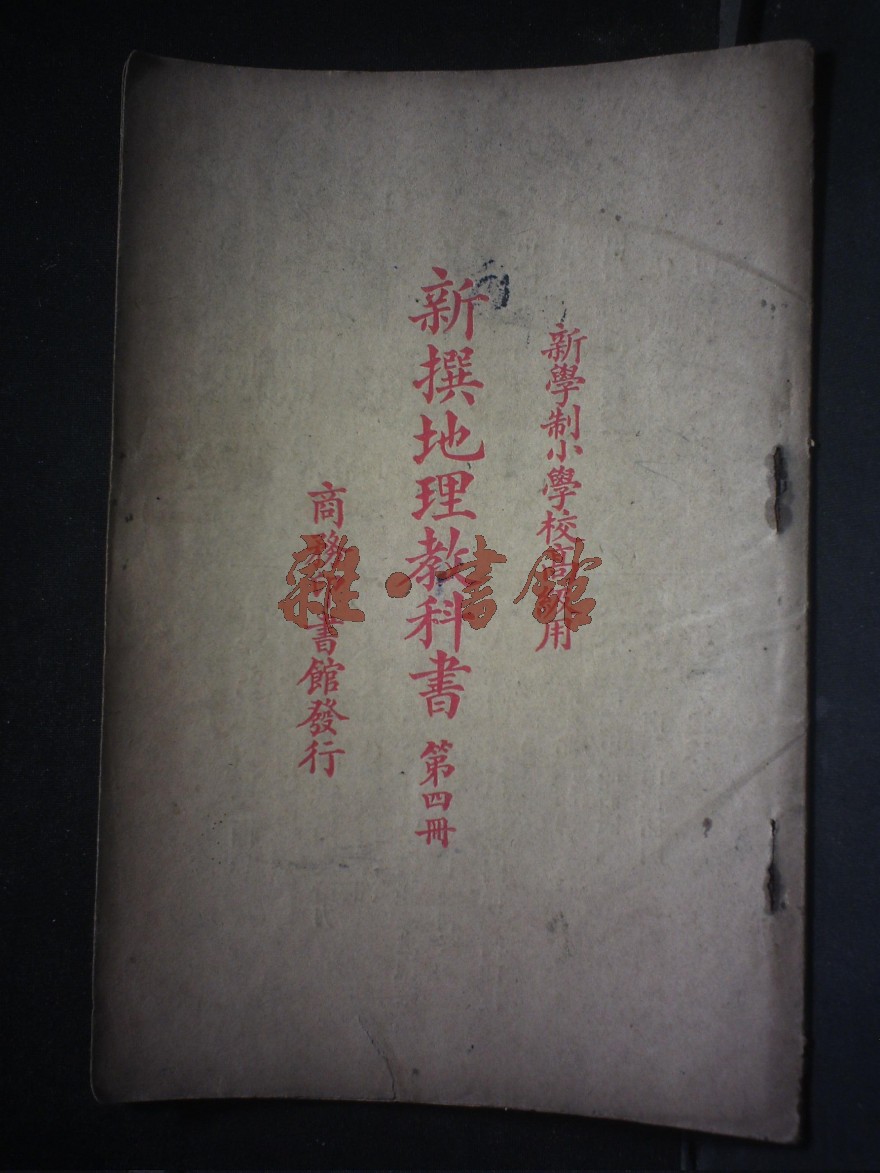 新學制小學校高級用
新撰地理教科書 第四冊
商務印書館發行
雜·書館